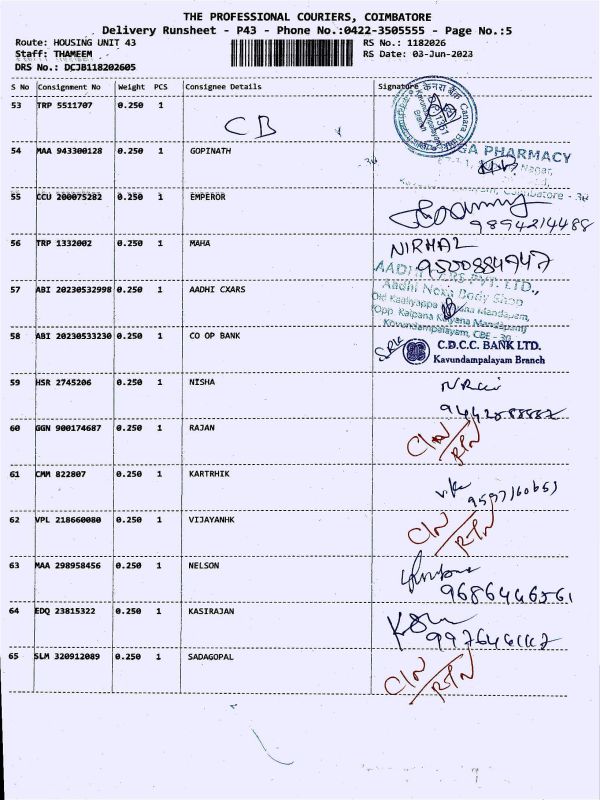 THE PROFESSIONAL COURIERS, COIMBATORE
Delivery Runsheet - P43 - Phone No.:0422-3505555 - Page No.:5
Route: HOUSING UNIT 43 RS No.: 1182026
Staff: THAMEEM RS Date: 03-Jun-2023
DRS No.: DCJB118202605
S No Consignment No Weight PCS Consignee Details Signature
53 TRP 5511707 0.250 1 CB केनरा बैंक Canara Bank
54 MAA 943300128 0.250 1 GOPINATH PHARMACY
Nagar,
Coimbatore -
55 CCU 200075282 0.250 1 EMPEROR
9894214488
56 TRP 1332002 0.250 1 MAHA NIRMAL
9500884947
57 ABI 20230532998 0.250 1 AADHI CXARS PVT. LTD.,
Aadhi Nexa Body Shop
Old Kaaliyappa Mandapam,
Opp. Kalpana Kalyana Mandapam
Kovundampalayam, CBE - 30
58 ABI 20230533230 0.250 1 CO OP BANK C.D.C.C. BANK LTD.
Kavundampalayam Branch
59 HSR 2745206 0.250 1 NISHA
60 GGN 900174687 0.250 1 RAJAN C/N/RTN
61 CMM 822807 0.250 1 KARTRHIK
62 VPL 218660080 0.250 1 VIJAYANHK C/N/RTN
63 MAA 298958456 0.250 1 NELSON
9686446561
64 EDQ 23815322 0.250 1 KASIRAJAN
65 SLM 320912089 0.250 1 SADAGOPAL C/N/RTN